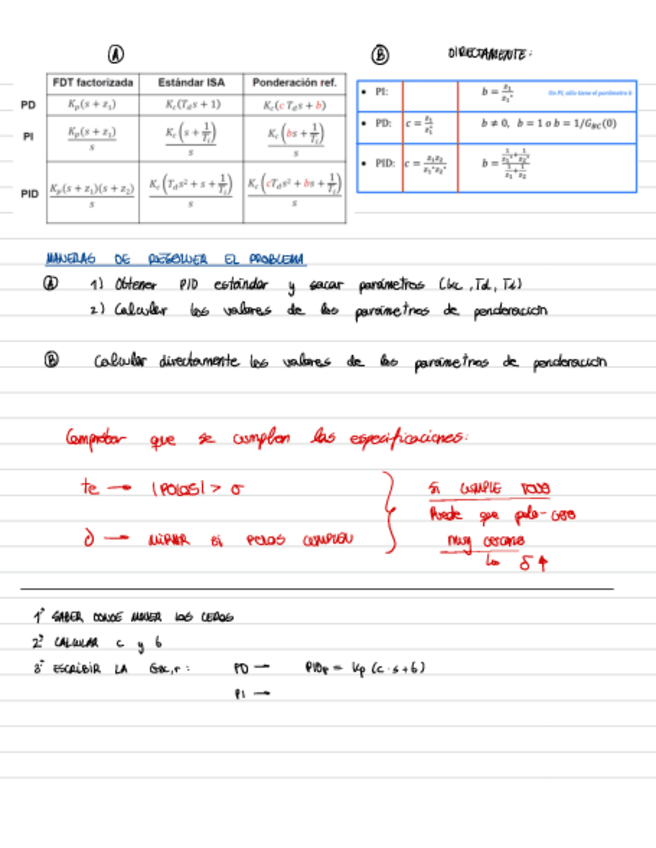 Ⓐ
FDT factorizada Estándar ISA Ponderación ref.
PD K_p(s + z_1) K_c(T_d s + 1) K_c(c T_d s + b)
PI K_p(s + z_1)/s K_c(s + 1/T_i)/s K_c(bs + 1/T_i)/s
PID K_p(s + z_1)(s + z_2)/s K_c(T_d s² + s + 1/T_i)/s K_c(cT_d s² + bs + 1/T_i)/s
Ⓑ DIRECTAMENTE:
• PI: b = z_1/z_1* En PI, sólo tiene el parámetro b
• PD: c = z_1/z_1* b ≠ 0, b = 1 o b = 1/G_BC(0)
• PID: c = z_1z_2/z_1*z_2* b = (1/z_1* + 1/z_2*)/(1/z_1 + 1/z_2)
MANERAS DE RESOLVER EL PROBLEMA
Ⓐ 1) Obtener PID estándar y sacar parámetros (kc, Td, Ti)
2) Calcular los valores de los parámetros de ponderación
Ⓑ Calcular directamente los valores de los parámetros de ponderación
Comprobar que se cumplan las especificaciones:
te → |POLOS| > σ
δ → MIRAR SI POLOS CUMPLEN
SI CUMPLE TODO
Puede que polo-cero
muy cercano
↳ δ↑
1º SABER DONDE MOVER LOS CEROS
2º CALCULAR c y b
3º ESCRIBIR LA GBC,r: PD → PIDr = Kp (c·s+b)
PI →